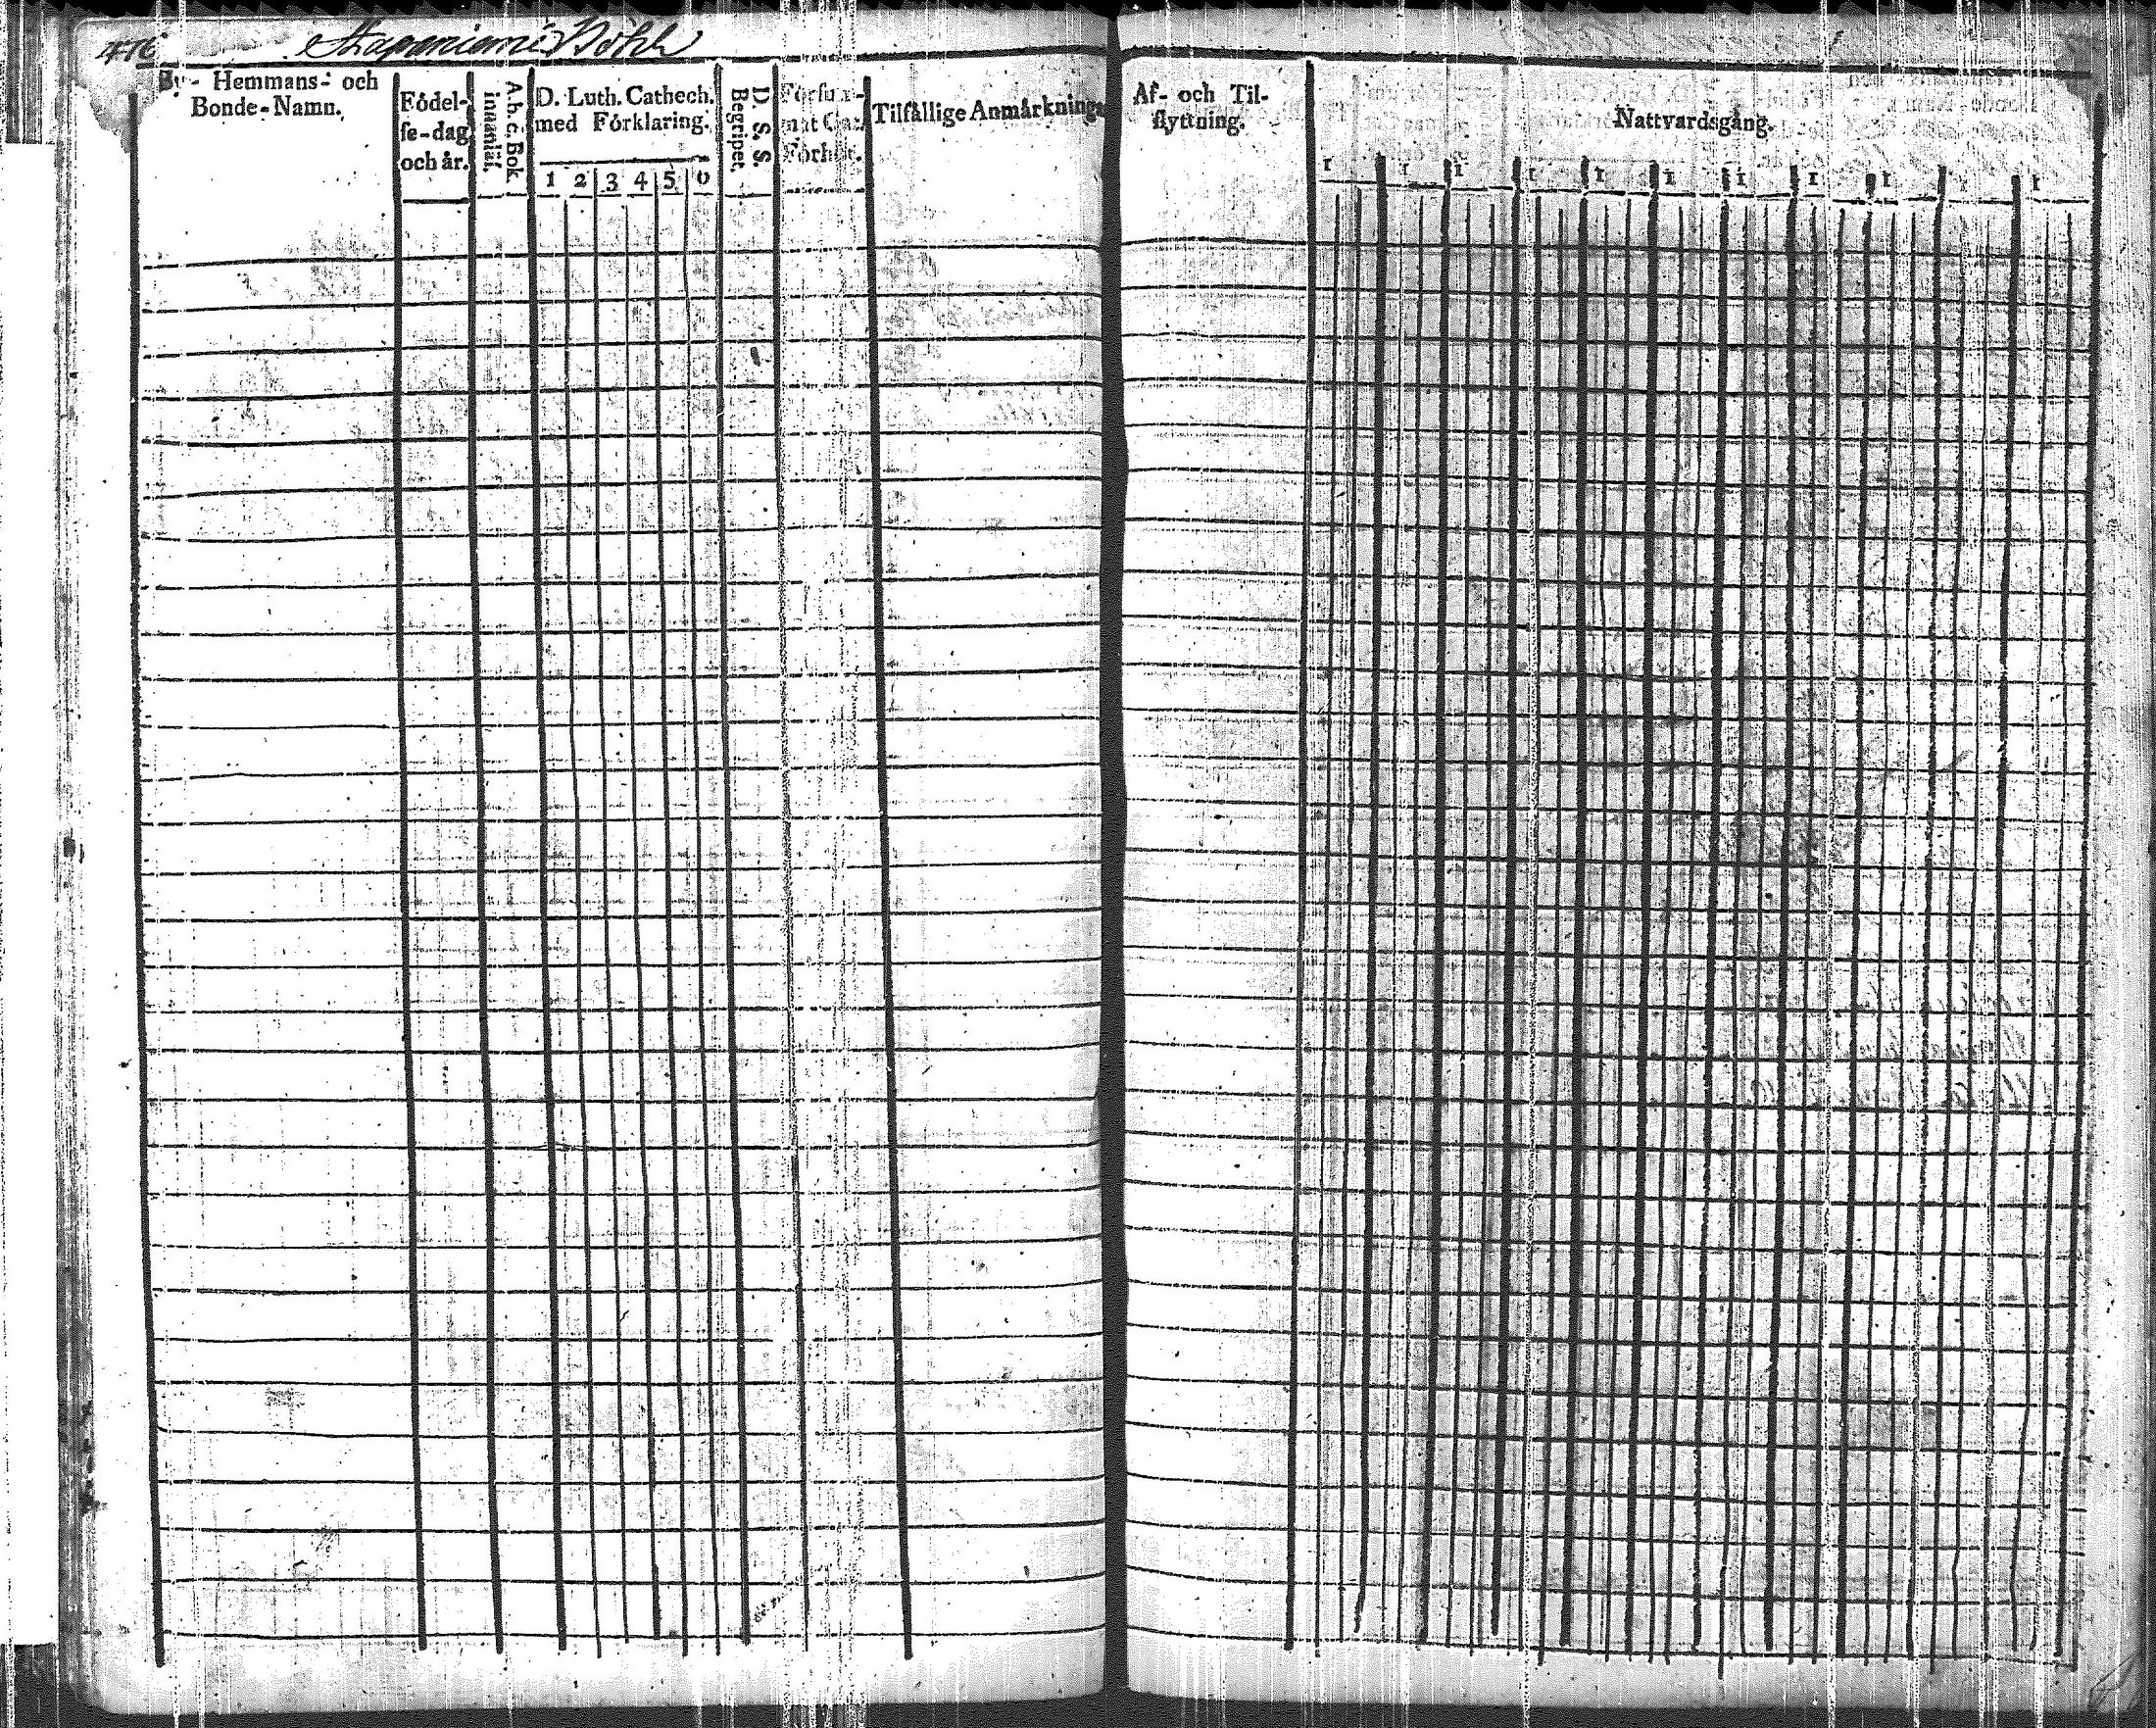 476
By- Hemmans- och
Bonde-Namn.
Födel-
se-dag
och år.
A. b. c. Bok
innanläs.
D. Luth. Cathech.
med Förklaring.
1 2 3 4 5 0
D. S. S.
Begripet.
Försum-
mat Cat.
Förhör.
Tilfällige Anmärkningar
Af- och Til-
flyttning.
Nattvardsgång.
1 1 1 1 1 1 1 1 1 1